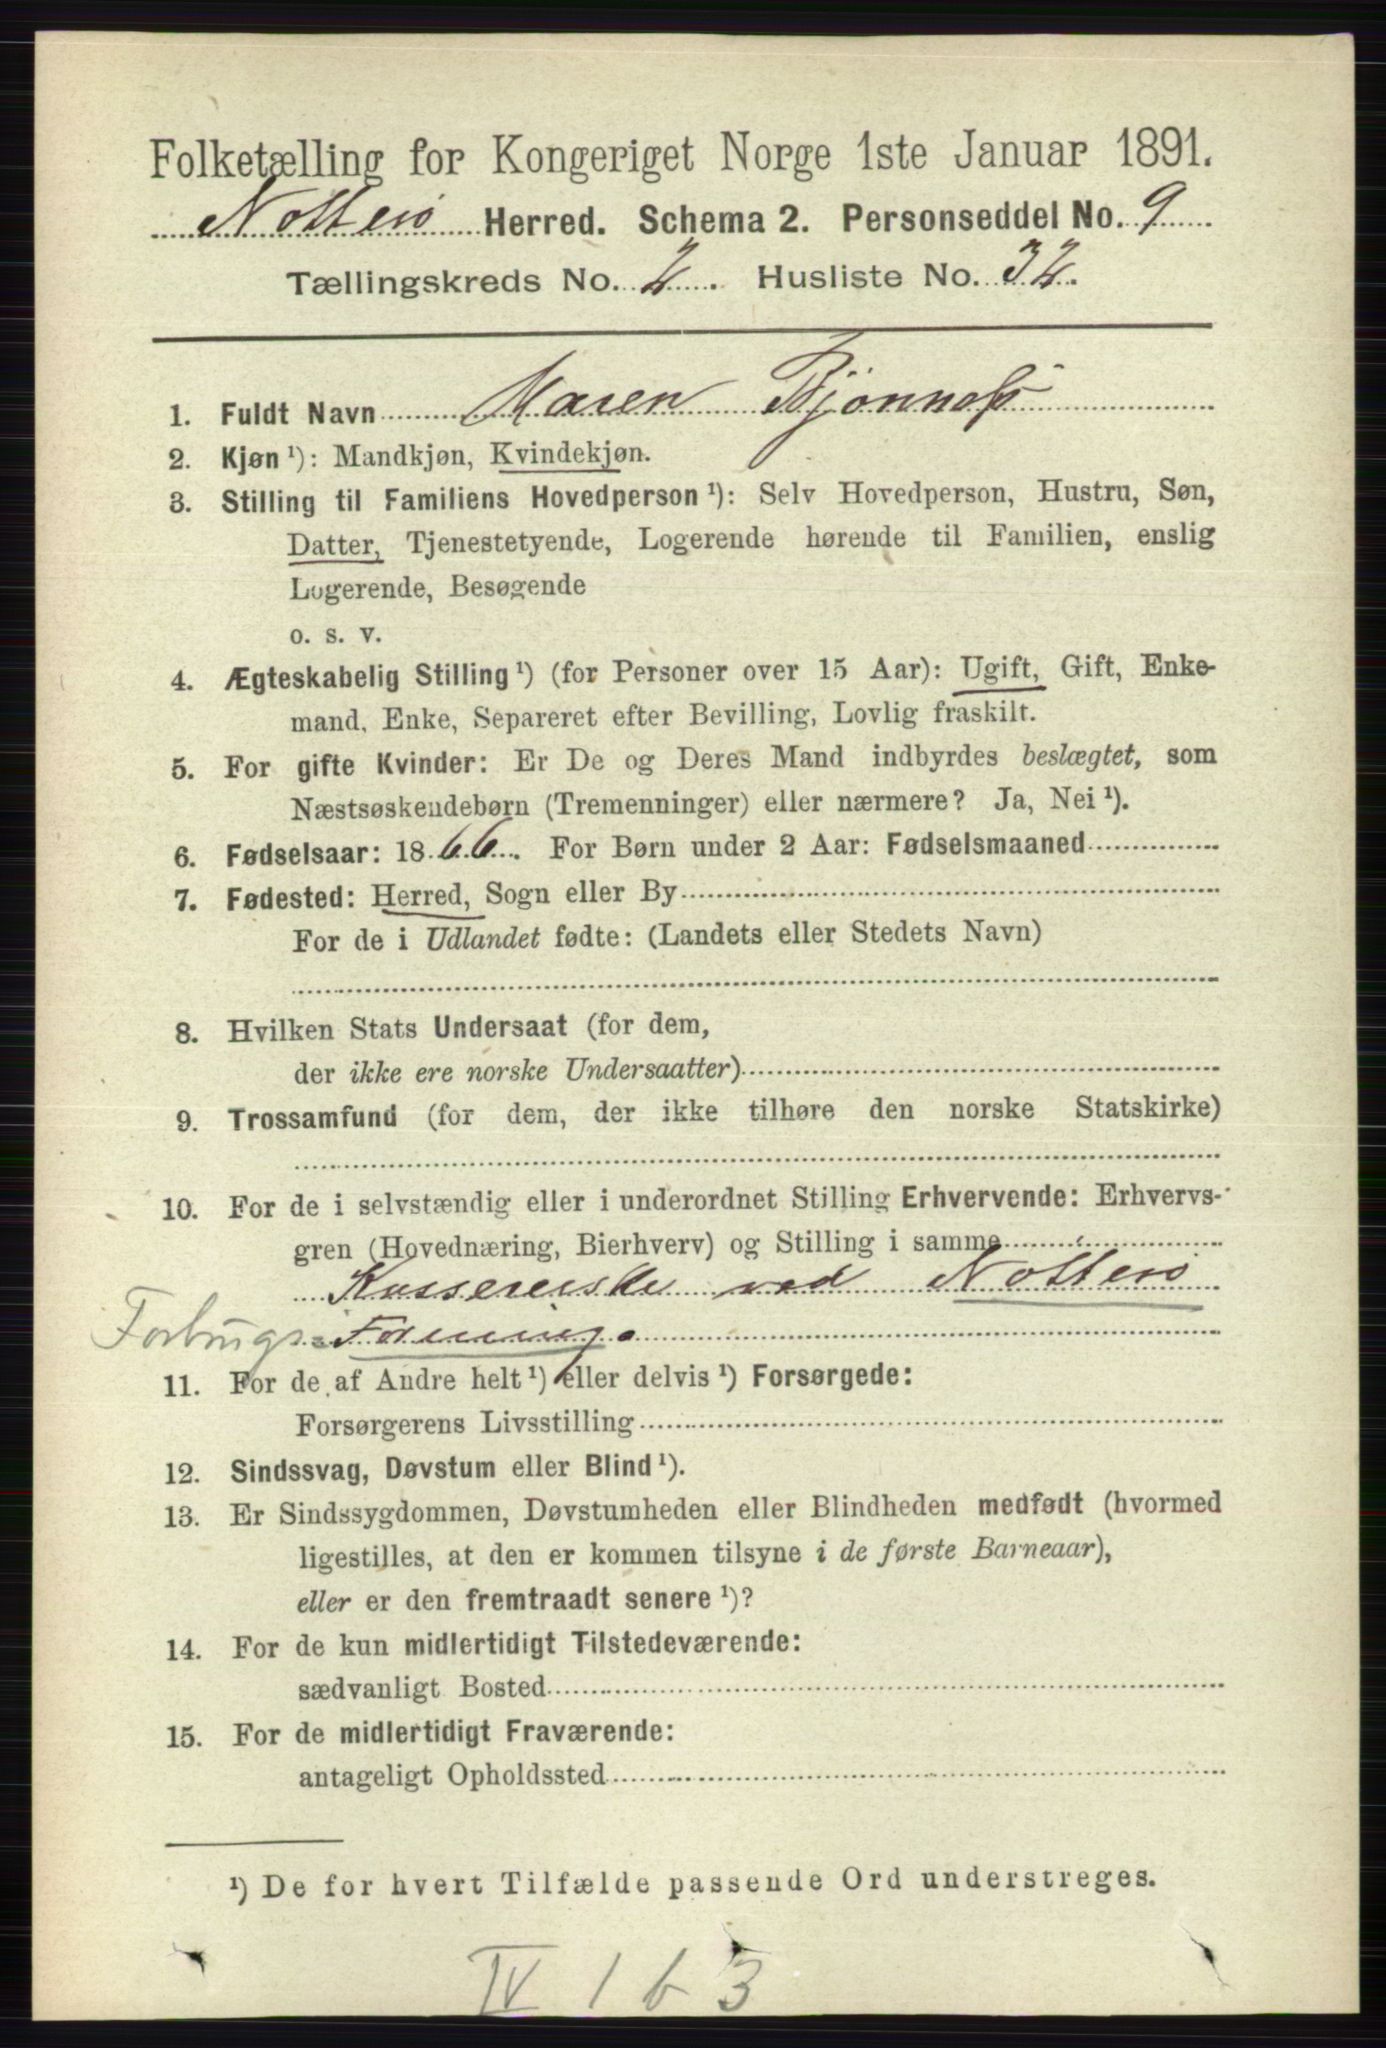 Folketælling for Kongeriget Norge 1ste Januar 1891.
Nøtterø Herred. Schema 2. Personseddel No. 9
Tællingskreds No. 2. Husliste No. 32.
1. Fuldt Navn Maren Bjønnes
2. Kjøn ¹): Mandkjøn, Kvindekjøn.
3. Stilling til Familiens Hovedperson ¹): Selv Hovedperson, Hustru, Søn,
Datter, Tjenestetyende, Logerende hørende til Familien, enslig
Logerende, Besøgende
o. s. v.
4. Ægteskabelig Stilling ¹) (for Personer over 15 Aar): Ugift, Gift, Enke-
mand, Enke, Separeret efter Bevilling, Lovlig fraskilt.
5. For gifte Kvinder: Er De og Deres Mand indbyrdes beslægtet, som
Næstsøskendebørn (Tremenninger) eller nærmere? Ja, Nei ¹).
6. Fødselsaar: 1866. For Børn under 2 Aar: Fødselsmaaned
7. Fødested: Herred, Sogn eller By
For de i Udlandet fødte: (Landets eller Stedets Navn)
8. Hvilken Stats Undersaat (for dem,
der ikke ere norske Undersaatter)
9. Trossamfund (for dem, der ikke tilhøre den norske Statskirke)
10. For de i selvstændig eller i underordnet Stilling Erhvervende: Erhvervs-
gren (Hovednæring, Bierhverv) og Stilling i samme
Kassererske ved Nøtterø
Forbrugs=Forening.
11. For de af Andre helt ¹) eller delvis ¹) Forsørgede:
Forsørgerens Livsstilling
12. Sindssvag, Døvstum eller Blind ¹).
13. Er Sindssygdommen, Døvstumheden eller Blindheden medfødt (hvormed
ligestilles, at den er kommen tilsyne i de første Barneaar),
eller er den fremtraadt senere ¹)?
14. For de kun midlertidigt Tilstedeværende:
sædvanligt Bosted
15. For de midlertidigt Fraværende:
antageligt Opholdssted
¹) De for hvert Tilfælde passende Ord understreges.
IV 1 b 3